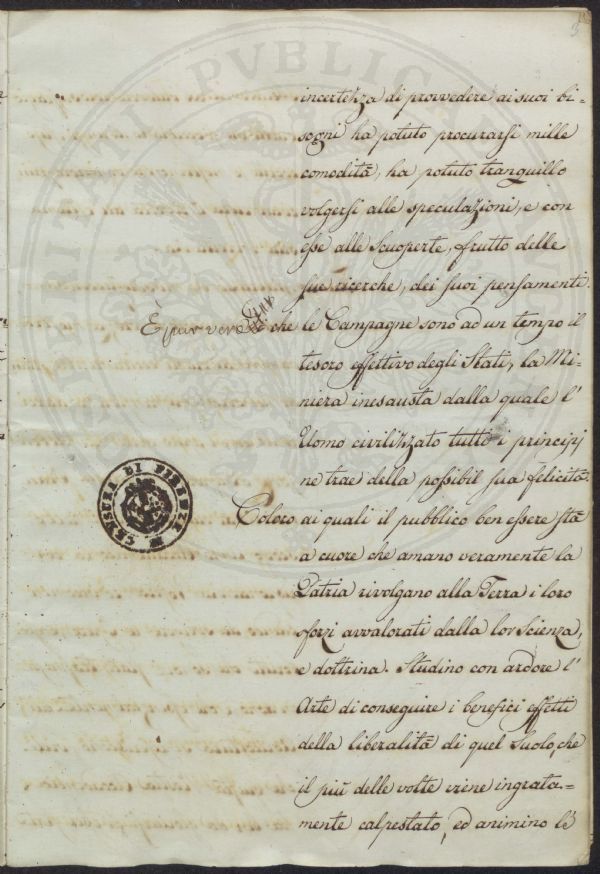 5
incertezza di provvedere ai suoi bi=
sogni ha potuto procurarsi mille
comodità, ha potuto tranquillo
volgersi alle speculazioni, e con
esse alle Scuoperte, frutto delle
sue ricerche, dei suoi pensamenti.
È pur vero che le Campagne sono ad un tempo il
tesoro effettivo degli Stati, la Mi=
niera inesausta dalla quale l'
Uomo civilizzato tutti i principj
ne trae della possibil sua felicità.
Coloro ai quali il pubblico ben essere stà
a cuore che amano veramente la
Patria rivolgano alla Terra i loro
sforzi avvalorati dalla lor Scienza,
e dottrina. Studino con ardore l'
Arte di conseguire i benefici effetti
della liberalità di quel Suolo, che
il più delle volte viene ingrata=
mente calpestato, ed animino lé
CENSURA DI FIRENZE